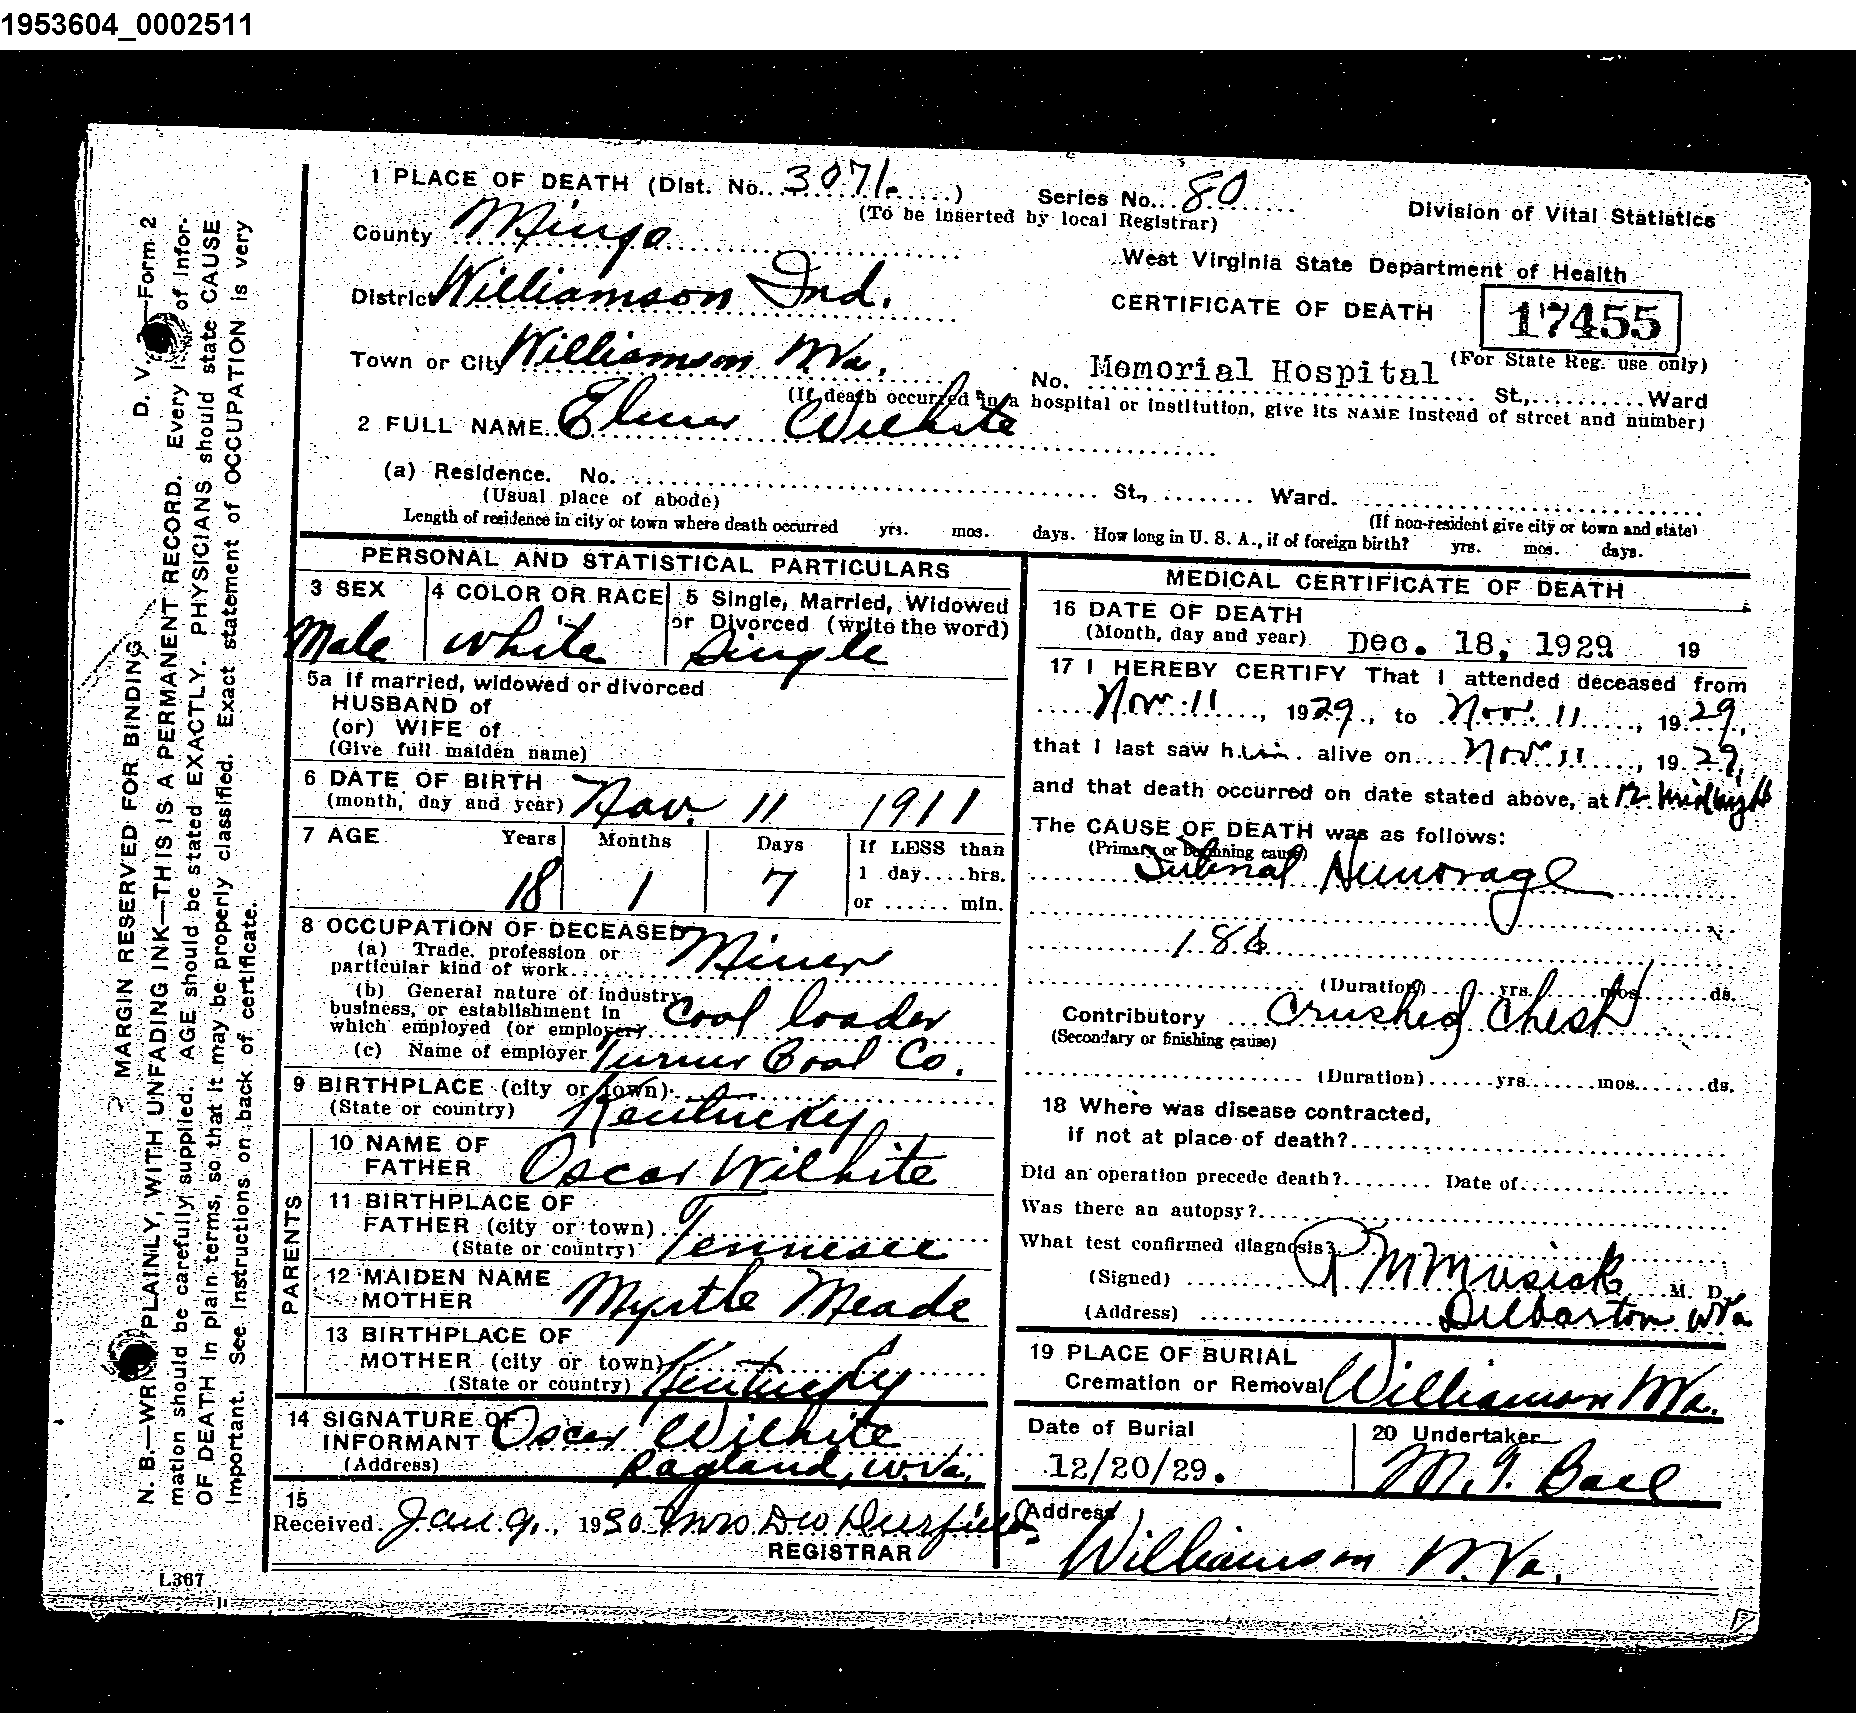 1953604_0002511
1 PLACE OF DEATH (Dist. No. 3071. ) Series No. 80
(To be inserted by local Registrar)
Division of Vital Statistics
County Mingo
West Virginia State Department of Health
District Williamson Ind.
CERTIFICATE OF DEATH 17455
(For State Reg. use only)
Town or City Williamson W.Va. No. Memorial Hospital St., Ward
(If death occurred in a hospital or institution, give its NAME instead of street and number)
2 FULL NAME Elmer Wilhite
(a) Residence. No. St., Ward.
(Usual place of abode) (If non-resident give city or town and state)
Length of residence in city or town where death occurred yrs. mos. days. How long in U. S. A., if of foreign birth? yrs. mos. days.
PERSONAL AND STATISTICAL PARTICULARS
3 SEX 4 COLOR OR RACE 5 Single, Married, Widowed
or Divorced (write the word)
Male White Single
5a If married, widowed or divorced
HUSBAND of
(or) WIFE of
(Give full maiden name)
6 DATE OF BIRTH
(month, day and year) Nov. 11 1911
7 AGE Years Months Days If LESS than
1 day....hrs.
or ...... min.
18 1 7
8 OCCUPATION OF DECEASED
(a) Trade, profession or
particular kind of work Miner
(b) General nature of industry,
business, or establishment in
which employed (or employer) Coal loader
(c) Name of employer Turner Coal Co.
9 BIRTHPLACE (city or town)
(State or country) Kentucky
PARENTS
10 NAME OF
FATHER Oscar Wilhite
11 BIRTHPLACE OF
FATHER (city or town)
(State or country) Tennesee
12 MAIDEN NAME
MOTHER Myrtle Meade
13 BIRTHPLACE OF
MOTHER (city or town)
(State or country) Kentucky
14 SIGNATURE OF
INFORMANT Oscar Wilhite
(Address) Ragland, W.Va.
15
Received Jan. 9, 1930 Mrs D W
REGISTRAR
MEDICAL CERTIFICATE OF DEATH
16 DATE OF DEATH
(Month, day and year) Dec. 18, 1929 19
17 I HEREBY CERTIFY That I attended deceased from
Nov. 11, 1929, to Nov. 11, 1929,
that I last saw him alive on Nov 11, 1929,
and that death occurred on date stated above, at 12 Midnight
The CAUSE OF DEATH was as follows:
(Primary or beginning cause)
Hemorage
186
(Duration) yrs. mos. ds.
Contributory Crushed Chest
(Secondary or finishing cause)
(Duration) yrs. mos. ds.
18 Where was disease contracted,
if not at place of death?
Did an operation precede death? Date of
Was there an autopsy?
What test confirmed diagnosis?
(Signed) M Musick M. D.
(Address) Delbarton W Va
19 PLACE OF BURIAL
Cremation or Removal Williamson W.Va.
Date of Burial 20 Undertaker
12/20/29. M. T. Ball
Address
Williamson W.Va.
L367
11
D. V. S.—Form 2
MARGIN RESERVED FOR BINDING
N. B.—WRITE PLAINLY, WITH UNFADING INK—THIS IS A PERMANENT RECORD. Every item of infor-
mation should be carefully supplied. AGE should be stated EXACTLY. PHYSICIANS should state CAUSE
OF DEATH in plain terms, so that it may be properly classified. Exact statement of OCCUPATION is very
important. See Instructions on back of certificate.